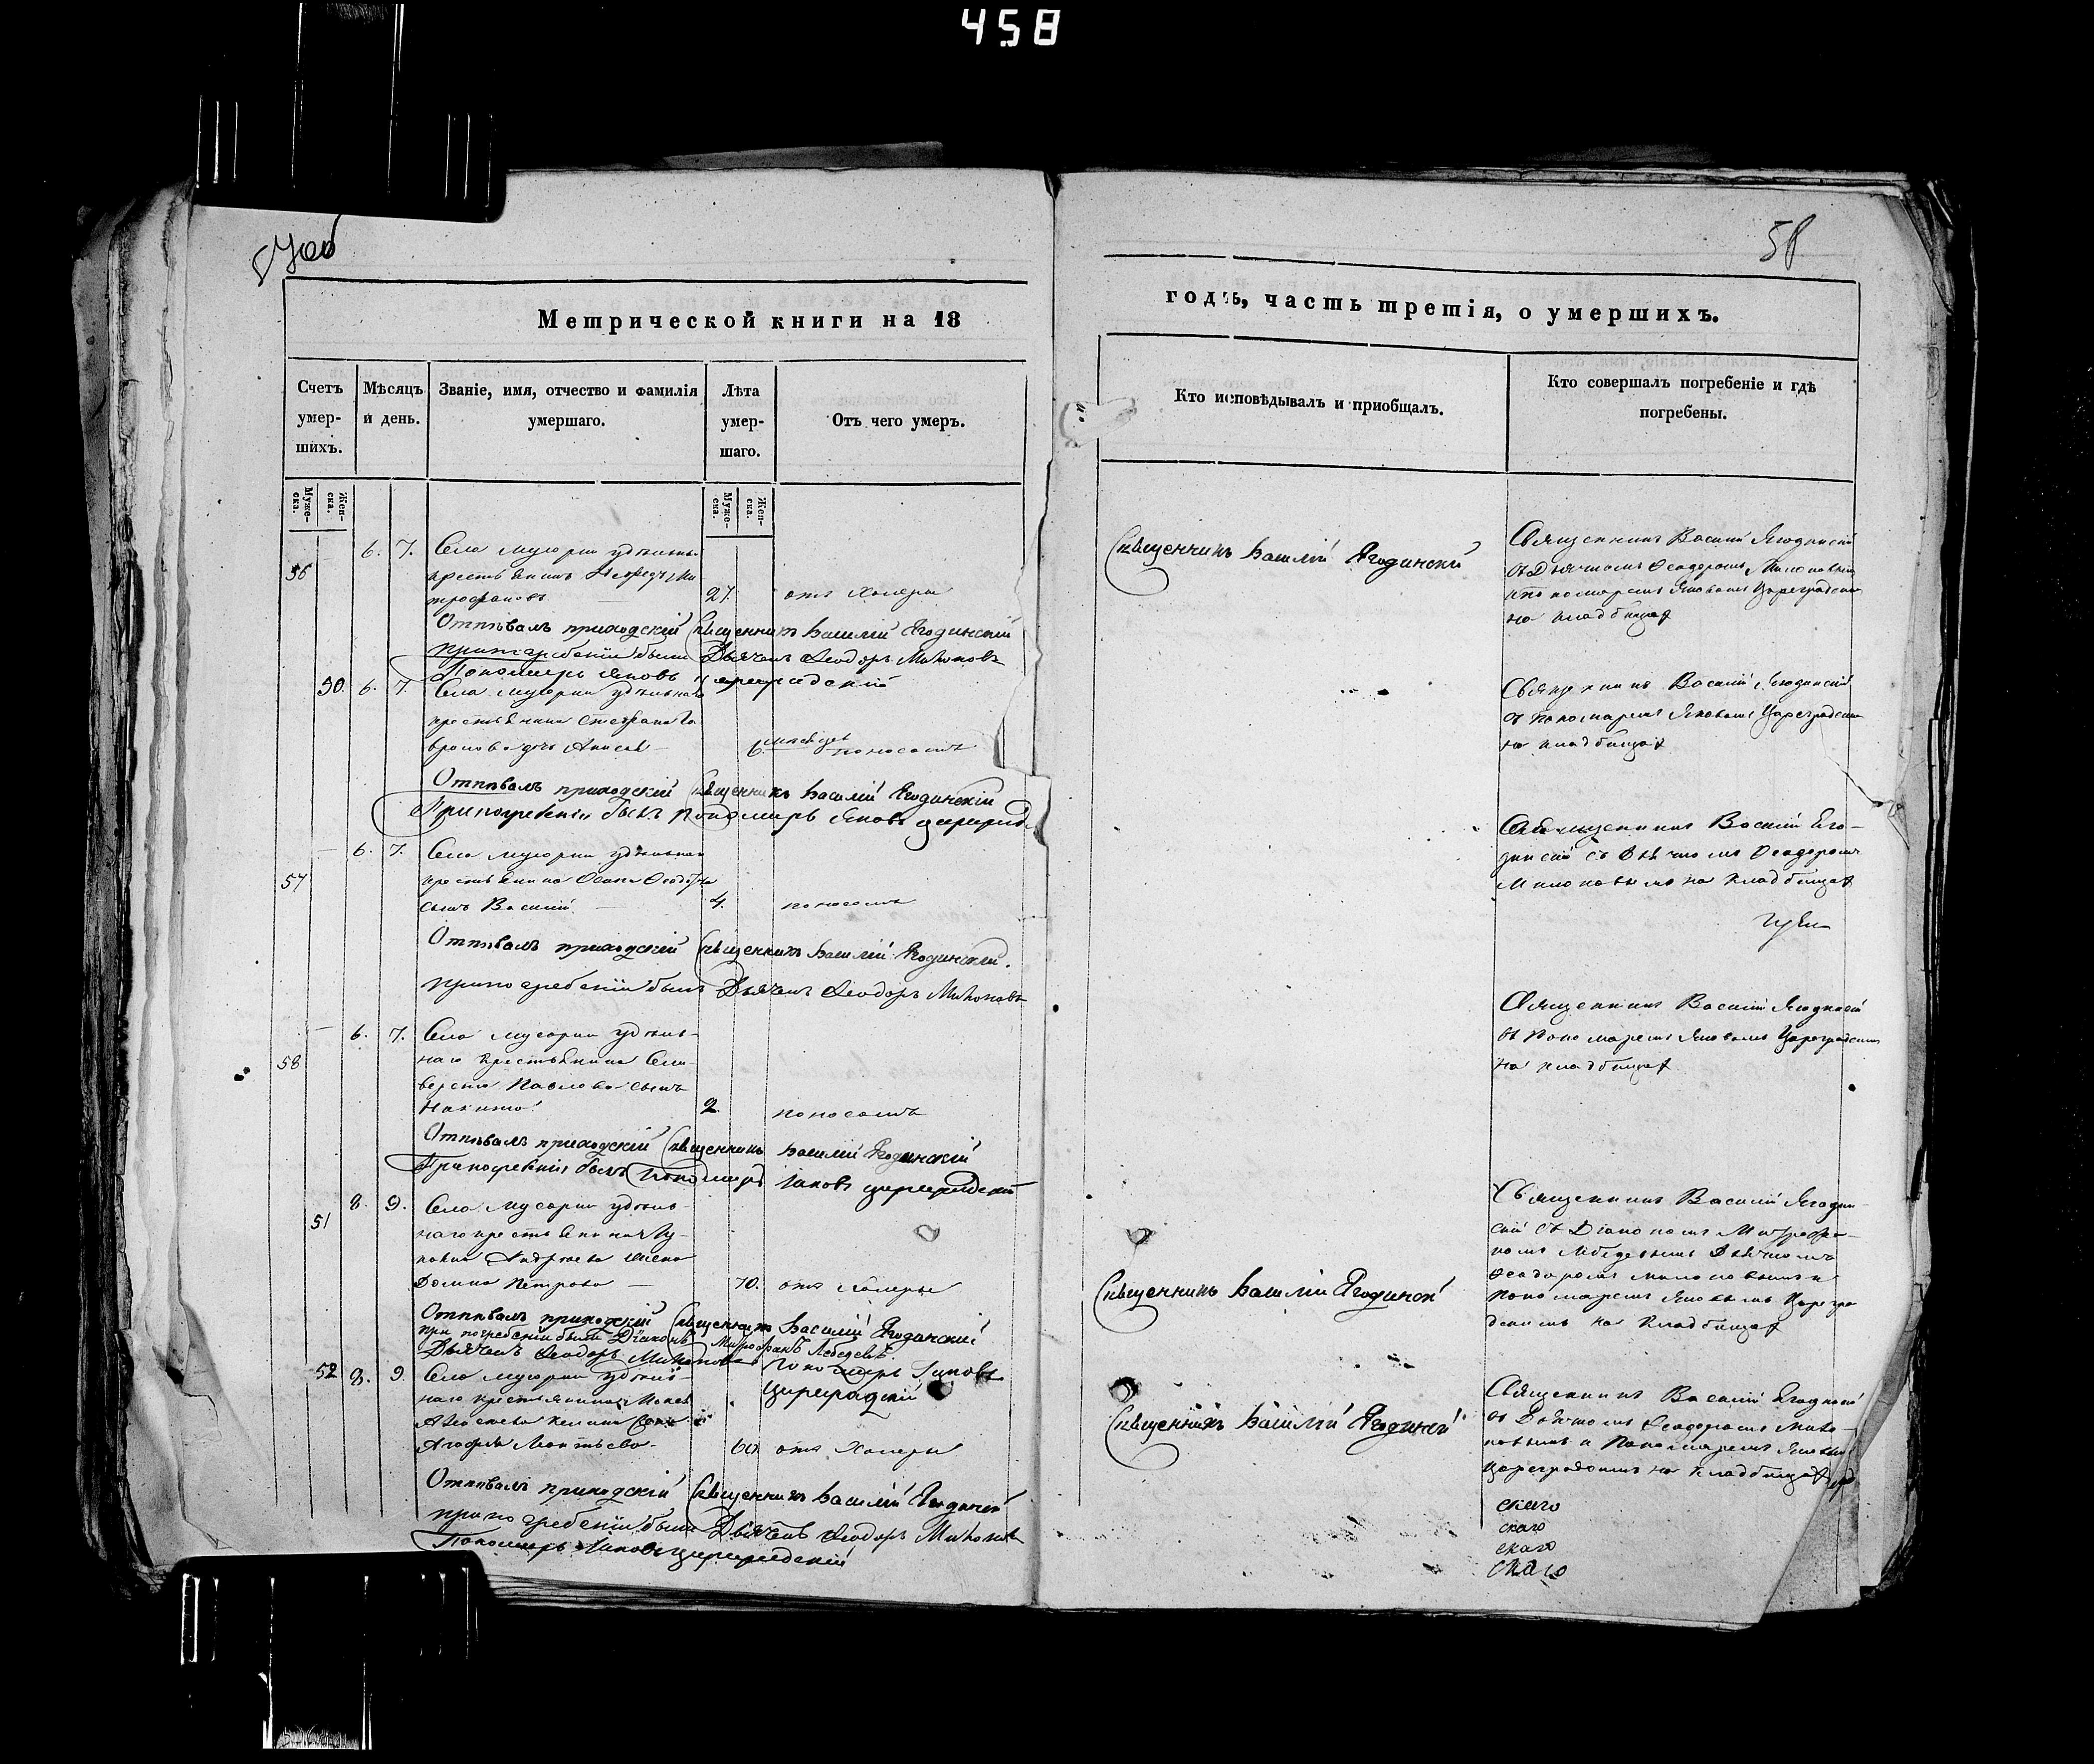 458
58
Метрической книги на 18
годъ, часть третія, о умершихъ.
Счетъ умер-шихъ.
Мѣсяцъ и день.
Званіе, имя, отчество и фамилія умершаго.
Лѣта умер-шаго.
Отъ чего умеръ.
Кто исповѣдывалъ и пріобщалъ.
Кто совершалъ погребеніе и гдѣ погребены.
Муже-ска.
Жен-ска.
Муже-ска.
Жен-ска.
56
6. 7.
Села
крестьянинъ
трофановъ
27.
отъ Холеры
Отпѣвалъ приходскій Священникъ Василій Ягодинскій
при погребеніи были Дьячекъ Ѳеодоръ Милоновъ
Пономарь Яковъ Цареградскій
Священникъ Василій Ягодинскій
Священникъ Василій Ягодинскій
съ Дьячкомъ Ѳеодоромъ Милоновымъ
и пономаремъ Яковомъ Цареградскимъ
на кладбищѣ
50. 6. 7.
Села
крестьянина Стефана Га
6. мѣсяцев
поносомъ
Отпѣвалъ приходскій Священникъ Василій Ягодинскій
При погребеніи былъ Пономарь Яковъ Цареград
Священникъ Василій Ягодинскій
съ пономаремъ Яковомъ Цареградским
на кладбищѣ
57
6. 7.
Села
крестьянина
сынъ Василій
4.
поносомъ
Отпѣвалъ приходскій Священникъ Василій Ягодинскій.
при погребеніи былъ Дьячекъ Ѳеодоръ Милоновъ
Священникъ Василій Яго-
динскій съ Дьячкомъ Ѳеодоромъ
Милоновымъ на кладбищѣ
58
6. 7.
Села удѣль-
наго крестьянина Сели-
верста Павлова сынъ
Никита
2.
поносомъ
Отпѣвалъ приходскій Священникъ Василій Ягодинскій
При погребеніи былъ Пономарь Іаковъ Цареградскій
Священникъ Василій Ягодинскій
съ Пономаремъ Яковомъ Цареградскимъ
на кладбищѣ
51
8. 9.
Села удѣль-
наго крестьянина Лу-
Андреева жена
Домна Петрова
70.
отъ Холеры
Отпѣвалъ приходскій Священникъ Василій Ягодинскій
при погребеніи были Діаконъ Митрофанъ Лебедевъ
Дьячекъ Ѳеодоръ Милоновъ Пономарь Іаковъ
Цареградскій
Священникъ Василій Ягодинскій
Священникъ Василій Ягодин-
скій съ Діакономъ Митрофа-
номъ Лебедевымъ Дьячкомъ
Ѳеодоромъ Милоновымъ и
пономаремъ Яковымъ Царегра
дскимъ на кладбищѣ
52
8. 9.
Села удѣль-
наго крестьянина
Агафья Леонтьева
60.
отъ Холеры
Отпѣвалъ приходскій Священникъ Василій Ягодинскій
при погребеніи были Дьячекъ Ѳеодоръ Милоновъ
Пономарь Іаковъ Цареградскій
Священникъ Василій Ягодинскій
Священникъ Василій Ягодинскій
съ Дьячкомъ Ѳеодоромъ Мило-
новымъ и Пономаремъ Яковымъ
Цареградскимъ на кладбищѣ
скаго
скаго
скаго
скаго